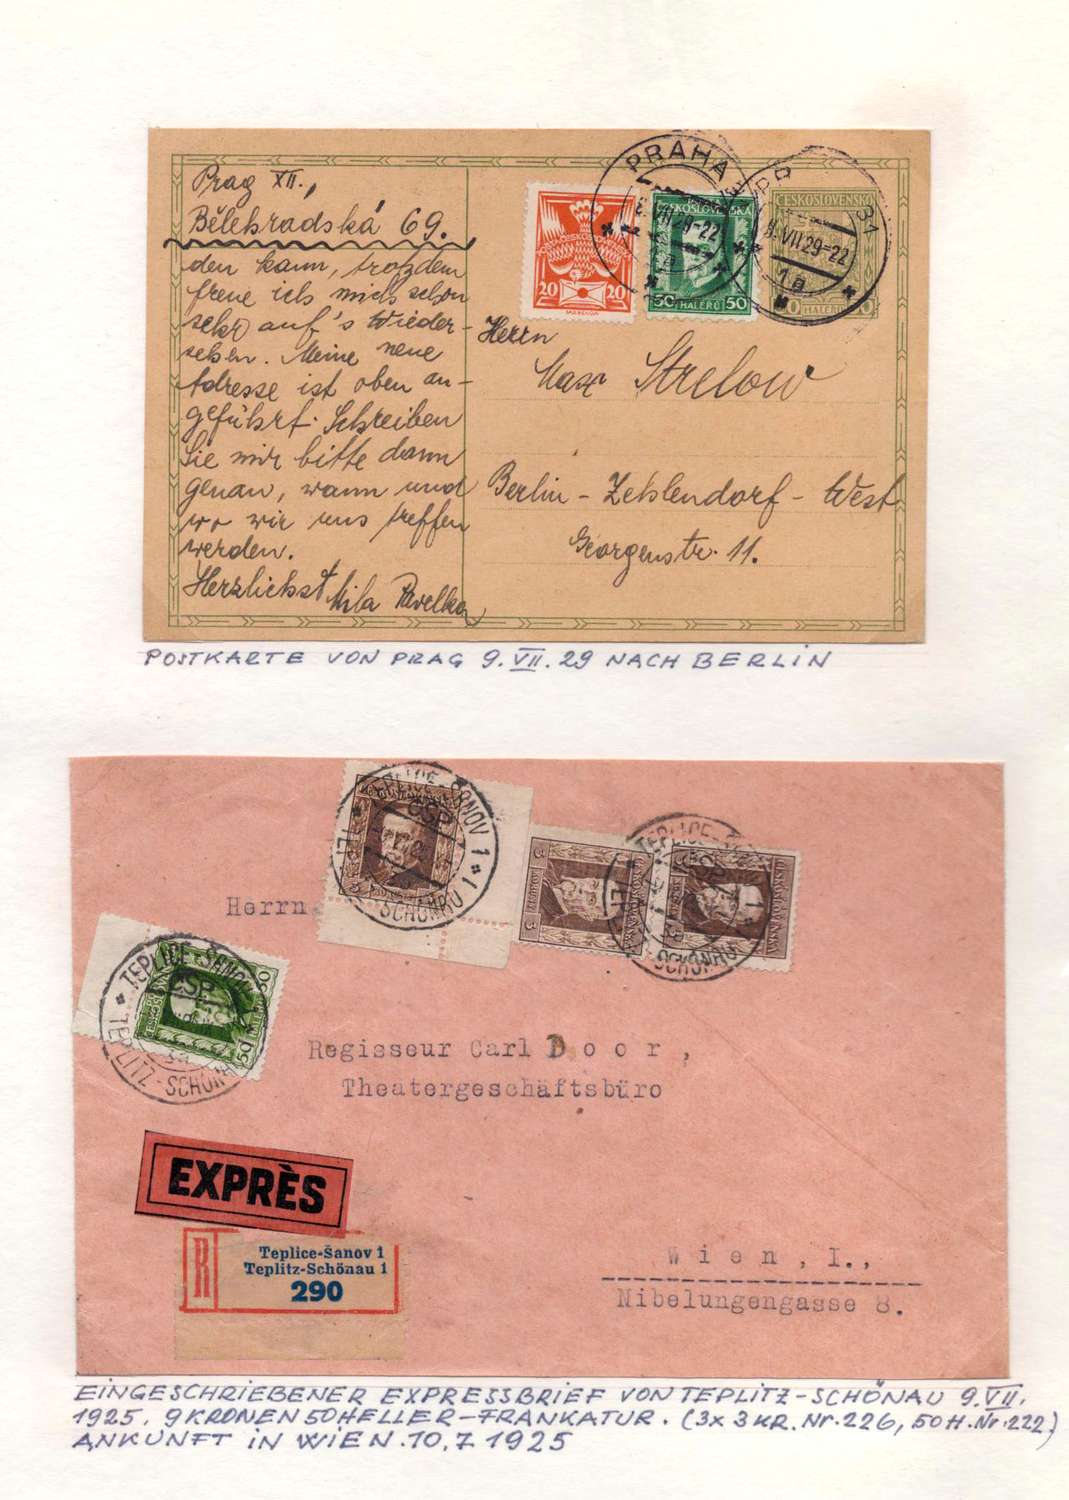 Prag XII.,
Bělehradská 69.
den kann, trotzdem
freue ich mich schon
sehr auf's Wieder-
sehen. Meine neue
Adresse ist oben an-
geführt. Schreiben
Sie mir bitte dann
genau, wann und
wo wir uns treffen
werden.
Herzlichst Mila Pavelka
PRAHA
VII 29-22
1a
31
VII 29-22
1a
20 20
ČESKOSLOVENSKÁ
50 HALÉŘŮ 50
ČESKOSLOVENSKO
HALÉŘŮ
Herrn
Max Strelow
Berlin - Zehlendorf - West
Georgenstr. 11.
POSTKARTE VON PRAG 9.VII.29 NACH BERLIN
TEPLICE-ŠANOV 1
ČSP
SCHÖNAU 1
3 3
ČESKOSLOVENSKÁ
TEPLICE-
ČSP
SCHÖNAU
TEPLICE-ŠANOV
ČSP
TEPLITZ-SCHÖNAU
50
Herrn
Regisseur Carl Door,
Theatergeschäftsbüro
EXPRÈS
R
Teplice-Šanov 1
Teplitz-Schönau 1
290
Wien, I.,
Nibelungengasse 8.
EINGESCHRIEBENER EXPRESSBRIEF VON TEPLITZ-SCHÖNAU 9.VII.
1925. 9 KRONEN 50 HELLER-FRANKATUR. (3x 3 KR. Nr. 226, 50 H. Nr. 222)
ANKUNFT IN WIEN. 10.7.1925